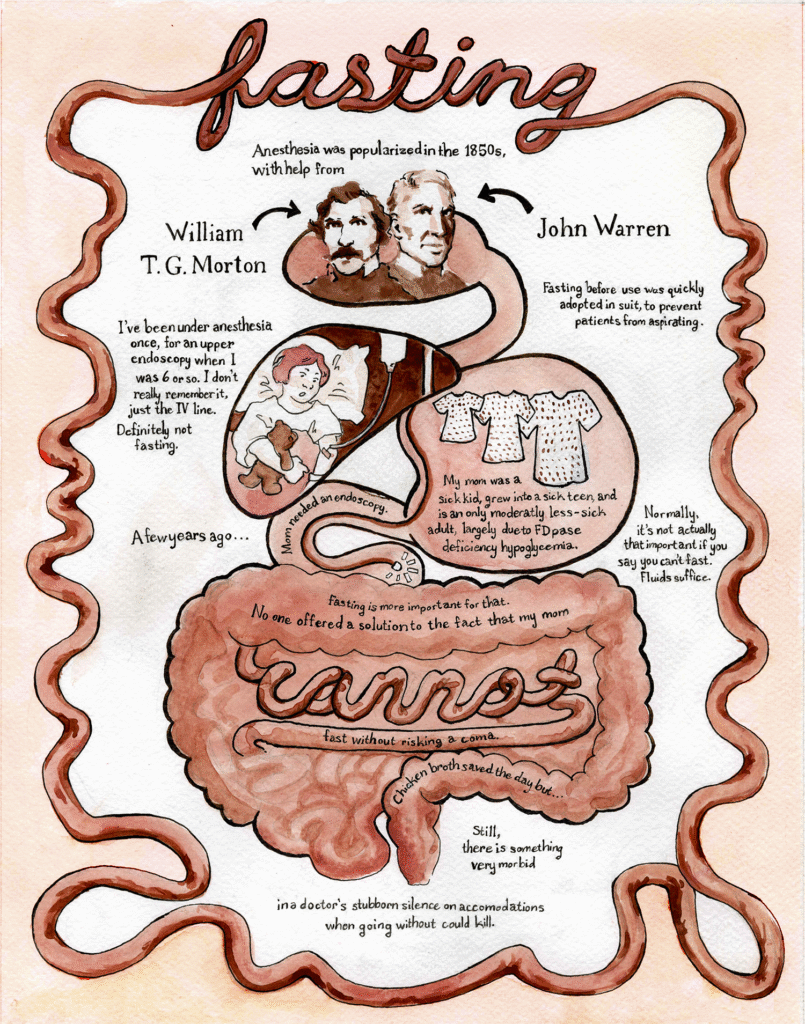 fasting
Anesthesia was popularized in the 1850s,
with help from
William
T. G. Morton
John Warren
Fasting before use was quickly
adopted in suit, to prevent
patients from aspirating.
I've been under anesthesia
once, for an upper
endoscopy when I
was 6 or so. I don't
really remember it,
just the IV line.
Definitely not
fasting.
My mom was a
sick kid, grew into a sick teen, and
is an only moderatly less-sick
adult, largely due to FDpase
deficiency hypoglycemia.
A few years ago...
Mom needed an endoscopy.
Normally,
it's not actually
that important if you
say you can't fast.
Fluids suffice.
Fasting is more important for that.
No one offered a solution to the fact that my mom
cannot
fast without risking a coma.
Chicken broth saved the day but...
Still,
there is something
very morbid
in a doctor's stubborn silence on accomodations
when going without could kill.